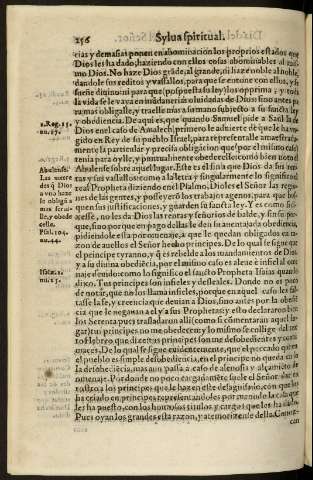 256
Sylua spiritual.
cias y demasias ponen en abominacion los proprios estados que
Dios les ha dado, haziendo con ellos cosas abominables al mis-
mo Dios. No haze Dios grãde, al grande, ni haze noble al noble,
dandole sus reditos y vasallos, para que se entone con ellos, y
la vida se le vaya en mũdanerias oluidadas de Dios sino antes pa
ramas obligalle, y traelle mas a su mano subiecto a su sancta ley
y obediencia. De aqui es, que quando Samuel pide a Saul la de
Dios en el caso de Amalech; primero le aduierte de que le ha vn-
gido en Rey de su pueblo Israel, para representalle
mente la particular y precisa obligacion
tenia para oylle, y puntualmente obedecelle como bien noto el
Abulense sobre aquel lugar. Este es el fin a que Dios da sus
tas y sus vassallos como a la letra y singularmente lo significo el
real Propheta diziendo en el Psalmo, Dioles el Señor las regio
nes de las gentes, y posseyerõ los trabajos agenos, para que bus-
quen sus justificaciones, y guarden su sancta ley. Y es como si di-
xesse, no les da Dios las rentas y señorios de balde,
que, sino porque en pago dellas le den su auentajada obediencia,
pudiendoles a cuenta
to de auellos el Señor hecho principes. De lo qual se sigue que
el principe tyranno, y q̃ es rebelde a los mandamientos de Dios
y a su diuina obediencia, por el mismo caso es aleue è infiel al
naje deuido: como lo significo el sancto Propheta Isaias quando
dixo. Tus principes son infieles y desleales. Donde no es poco
de notar, que no los llama infieles, porque en aquel caso les fal-
tasse la fe, y creencia que deuian a Dios, sino antes por la obediē
cia que le negauan a el y a sus Prophetas: y esso declararon bien
los Setenta pues trasladaron alli (como lo comentaran aquel lu-
gar) tus principes no me obedecen: y lo mismo se collige del tex
to Hebreo que dize tus principes son me desobedientes y
maces. De lo qual se sigue euidentemente, que el peccado que en
el pueblo es simple desobediencia, en el principe no queda en so
la desobediencia, mas aun passa a caso de aleuosia y alçamiẽto de
omenaje. Por donde no poco cargadamẽte suele el Señor dar en
rostro a los principes que le hazen este desaguisado, con que los
ha criado en principes representandoles por menudo la
les ha puesto, con los honrosos titulos y cargos que les ha dado.
Pues oyan los grandes esta razon, y atemorizente della. Conoz-
can
1.Reg.15.
nu.17.
Abulense.
Las merce
des q̃ Dios
a vno haze
le obligã a
mas seruil-
le, y obede
celle.
Psal.104.
nu.44.
Isaiæ.1.
nu.23.